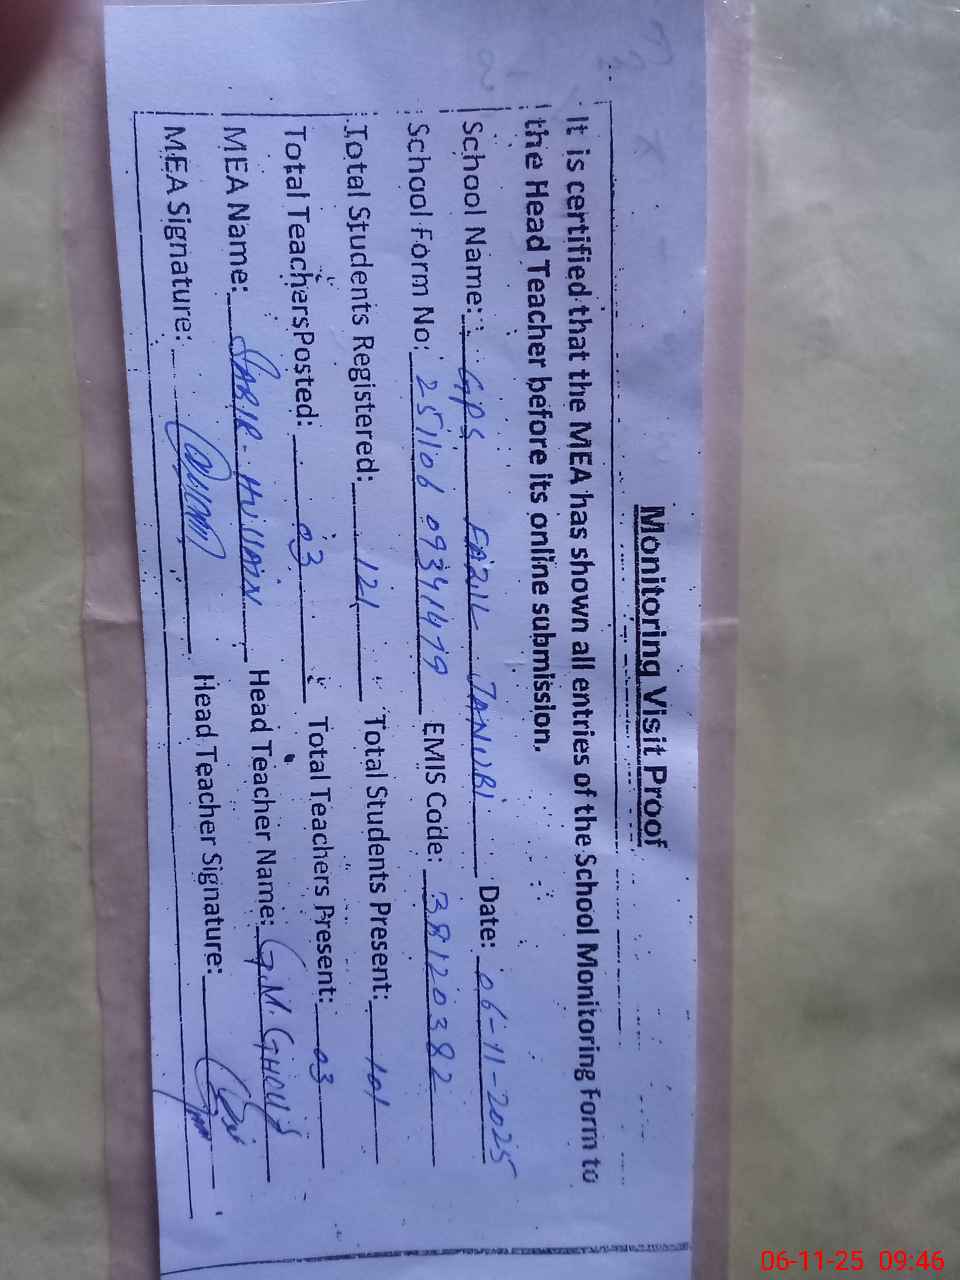 Monitoring Visit Proof
It is certified that the MEA has shown all entries of the School Monitoring Form to
the Head Teacher before its online submission.
School Name: GPS FAZIL JANUBI Date: 06-11-2025
School Form No: 251106 09341479 EMIS Code: 38120382
Total Students Registered: 121 Total Students Present: 101
Total Teachers Posted: 03 Total Teachers Present: 03
MEA Name: SABIR HUSSAIN Head Teacher Name: G.M. GHOUS
MEA Signature: Head Teacher Signature:
06-11-25 09:46